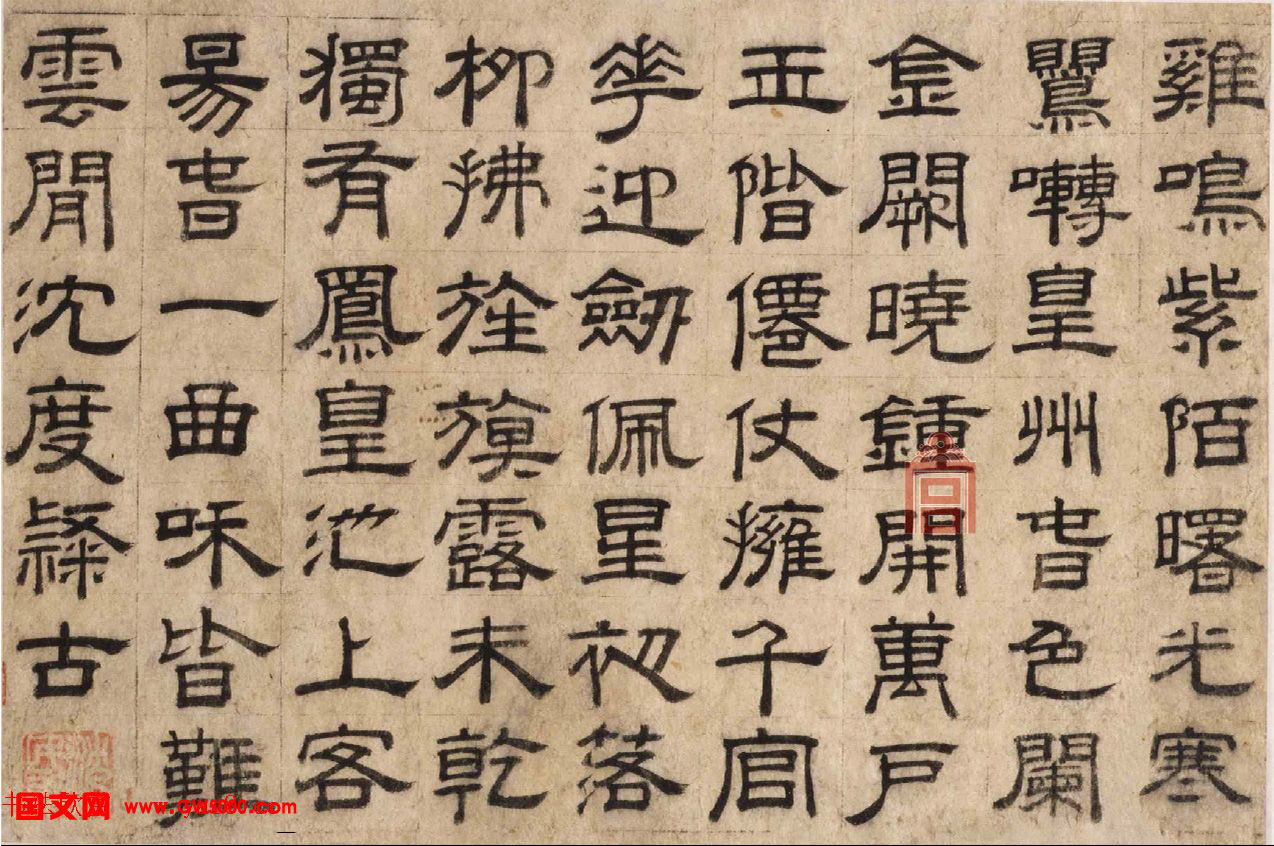 雞鳴紫陌曙光寒
鸎囀皇州旾色闌
金闕曉鍾開萬戶
玉階僊仗擁千官
華迎劒佩星初落
柳拂旌旗露未乾
獨有鳳皇池上客
昜旾一曲咊皆難
雲閒沈度隸古
国文网 www.gw5000.com